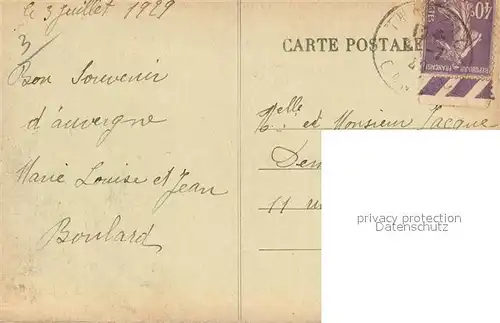 le 3 juillet 1929
3/
Bon Souvenir
d'auvergne
Marie Louise et Jean
Boulard
CARTE POSTALE
40c
POSTES
REPUBLIQUE FRANCAISE
et Monsieur Jacque
Dem
11
privacy protection